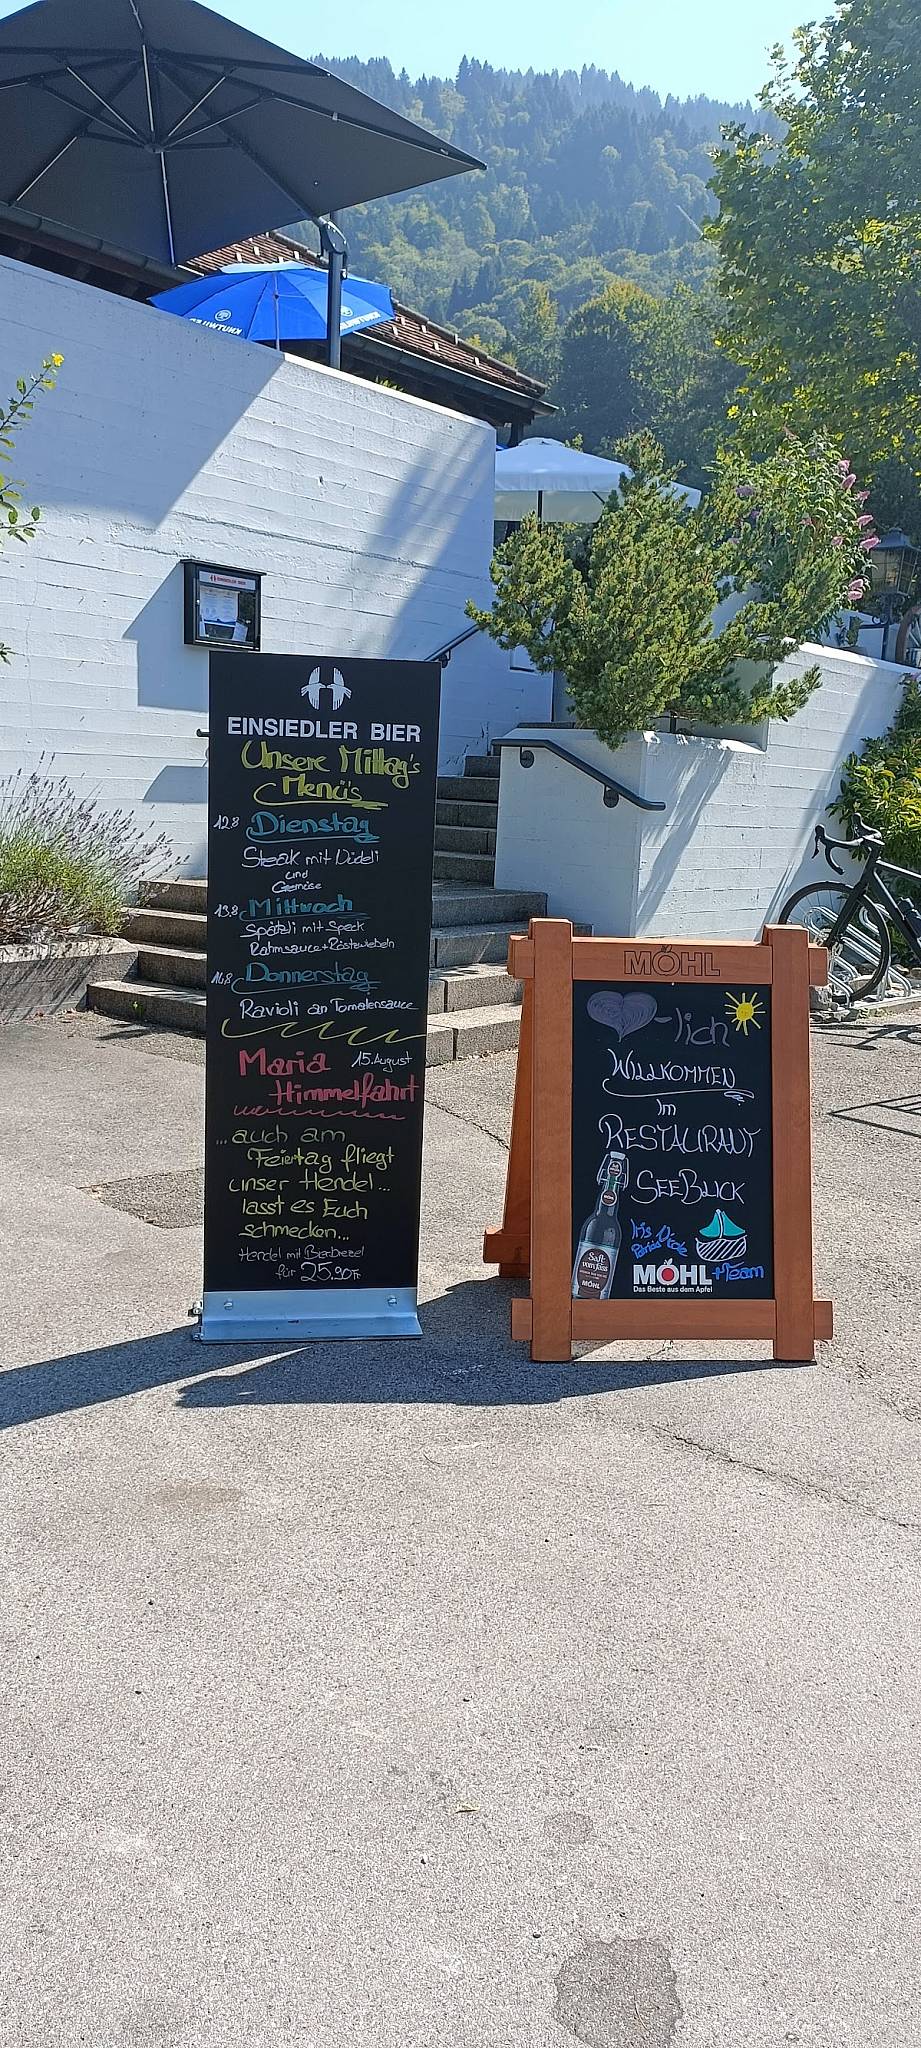 EINSIEDLER BIER
EINSIEDLER BIER
Unsere Mittag's
Menü's
12.8 Dienstag
Steak mit Nüdeli
und
Gemüse
13.8 Mittwoch
Spätzli mit Speck
Rahmsauce + Röstzwiebeln
14.8 Donnerstag
Ravioli an Tomatensauce
Maria 15. August
Himmelfahrt
...auch am
Feiertag fliegt
unser Hendel...
lasst es Euch
schmecken...
Hendel mit Bierbrezel
für 25.90 Fr
MÖHL
-lich
WILLKOMMEN
im
RESTAURANT
SEEBLICK
Iris
MÖHL + Team
Das Beste aus dem Apfel
Saft
vom Fass
MÖHL